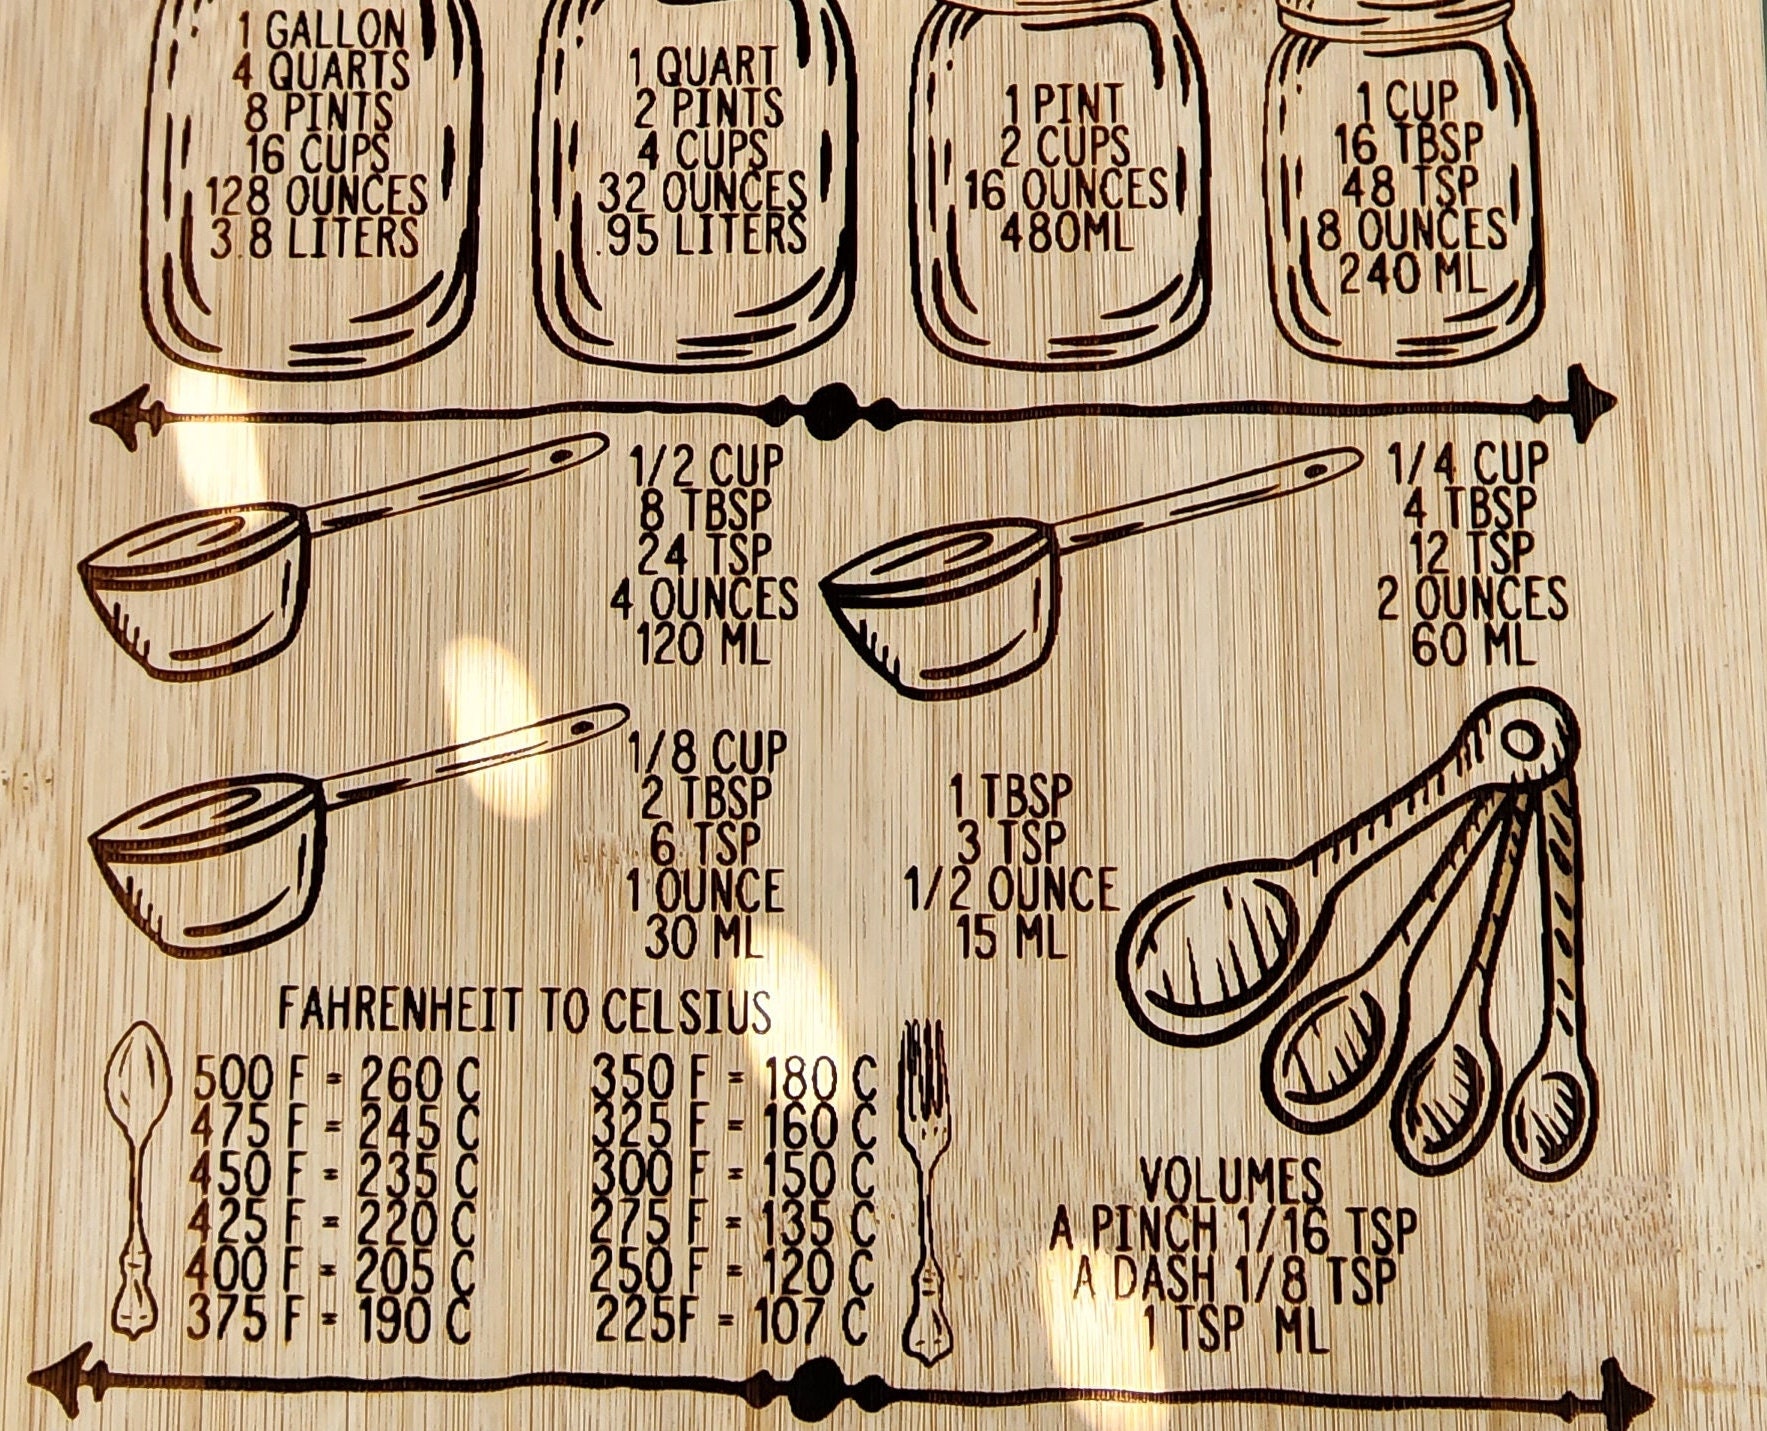 1 GALLON
4 QUARTS
8 PINTS
16 CUPS
128 OUNCES
3.8 LITERS
1 QUART
2 PINTS
4 CUPS
32 OUNCES
.95 LITERS
1 PINT
2 CUPS
16 OUNCES
480ML
1 CUP
16 TBSP
48 TSP
8 OUNCES
240 ML
1/2 CUP
8 TBSP
24 TSP
4 OUNCES
120 ML
1/4 CUP
4 TBSP
12 TSP
2 OUNCES
60 ML
1/8 CUP
2 TBSP
6 TSP
1 OUNCE
30 ML
1 TBSP
3 TSP
1/2 OUNCE
15 ML
FAHRENHEIT TO CELSIUS
500 F = 260 C
475 F = 245 C
450 F = 235 C
425 F = 220 C
400 F = 205 C
375 F = 190 C
350 F = 180 C
325 F = 160 C
300 F = 150 C
275 F = 135 C
250 F = 120 C
225F = 107 C
VOLUMES
A PINCH 1/16 TSP
A DASH 1/8 TSP
1 TSP ML